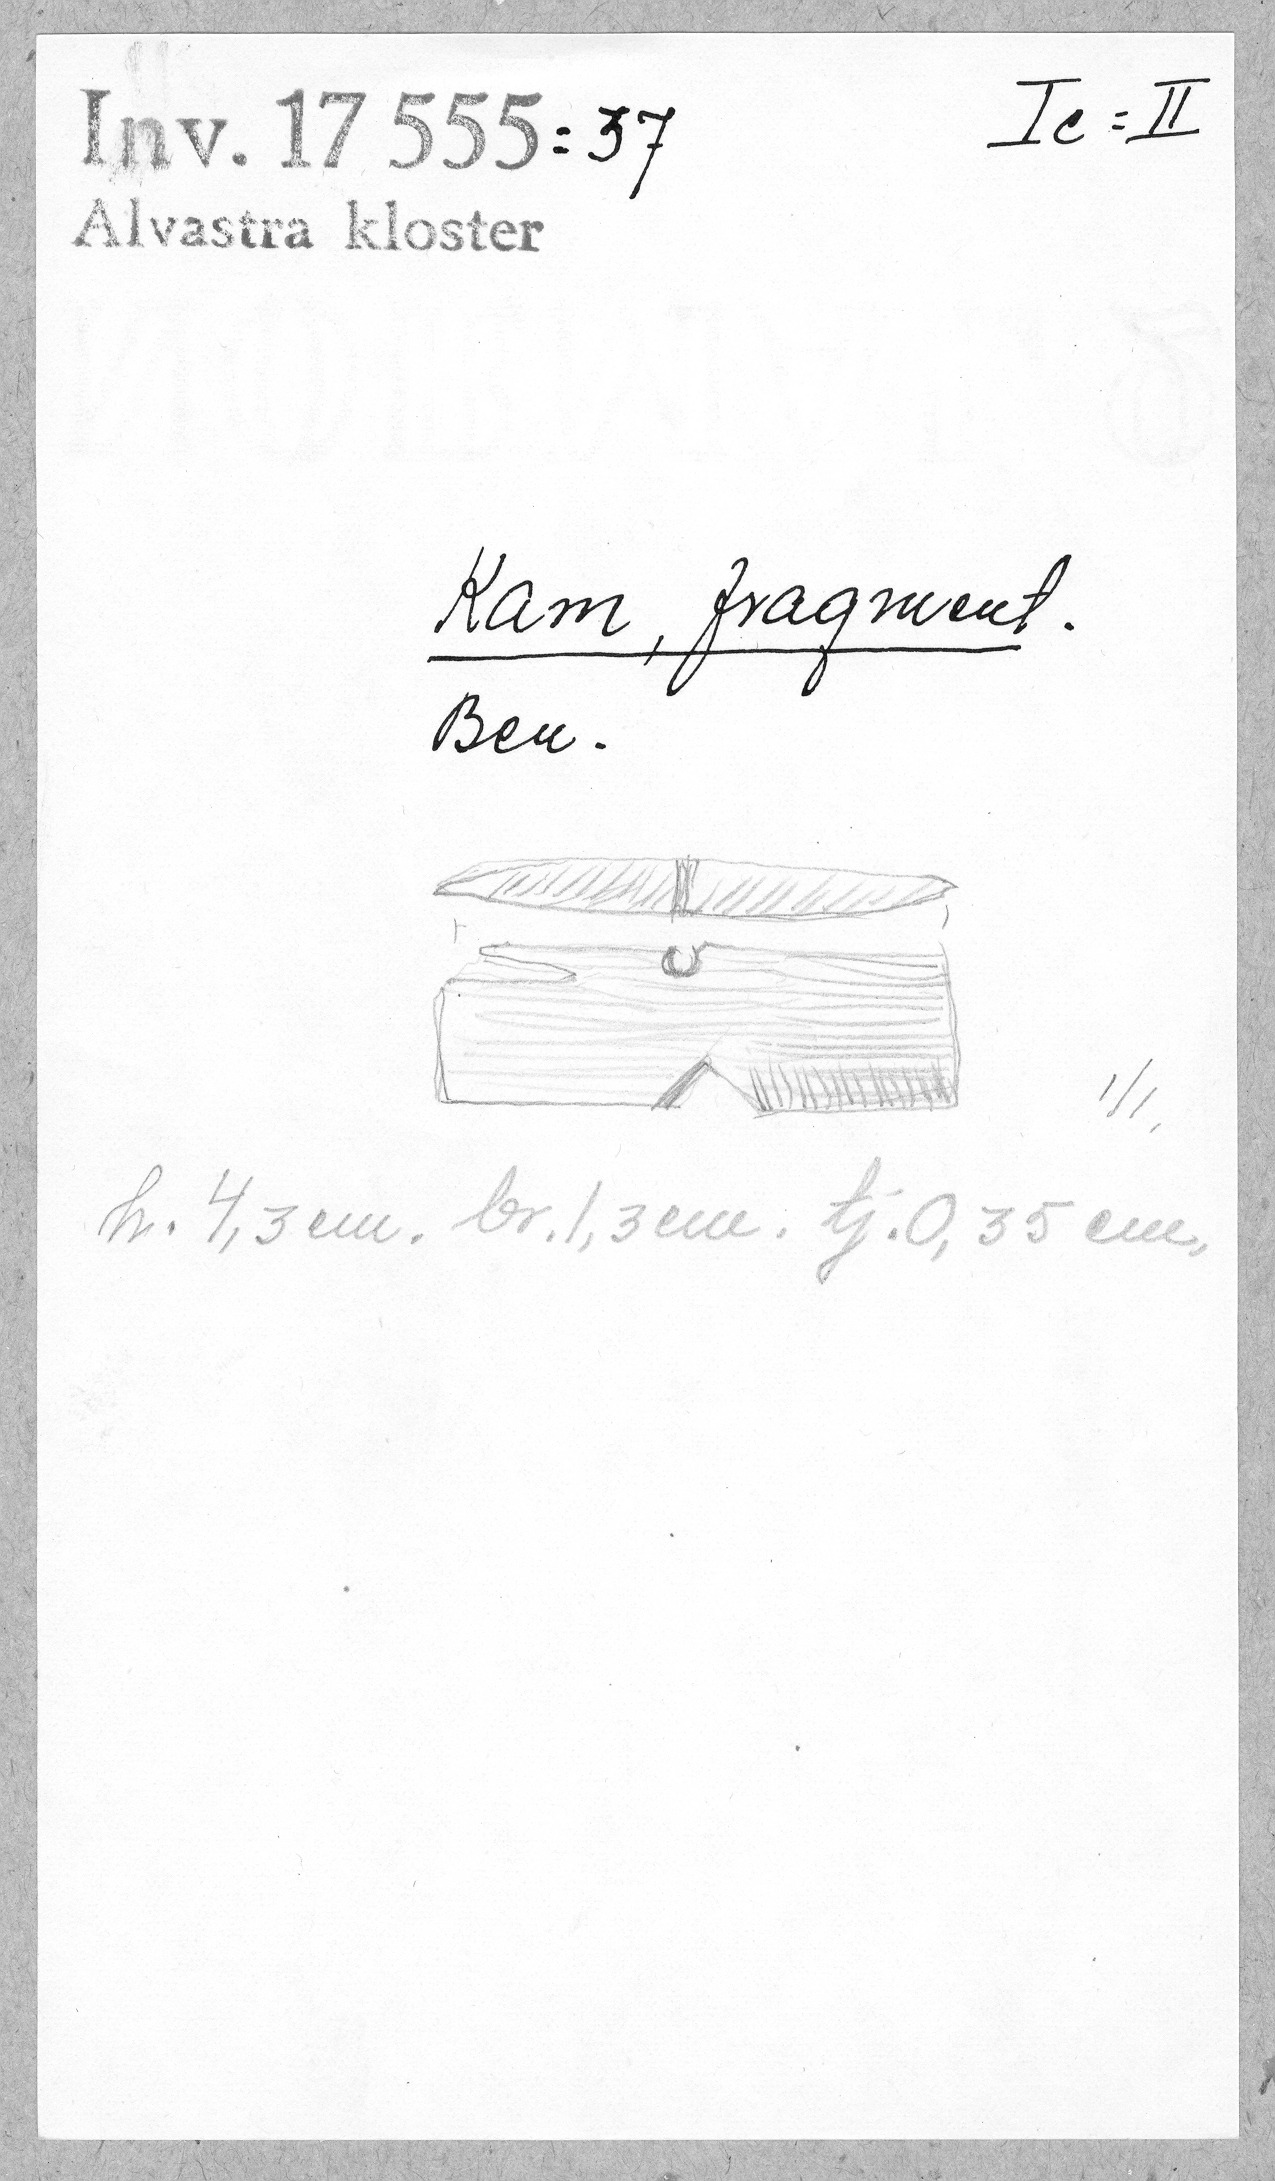 Inv. 17 555:37
Ic:II
Alvastra kloster
Kam, fragment.
Ben.
1/1.
h. 4,3 cm. br. 1,3 cm. tj. 0,35 cm.